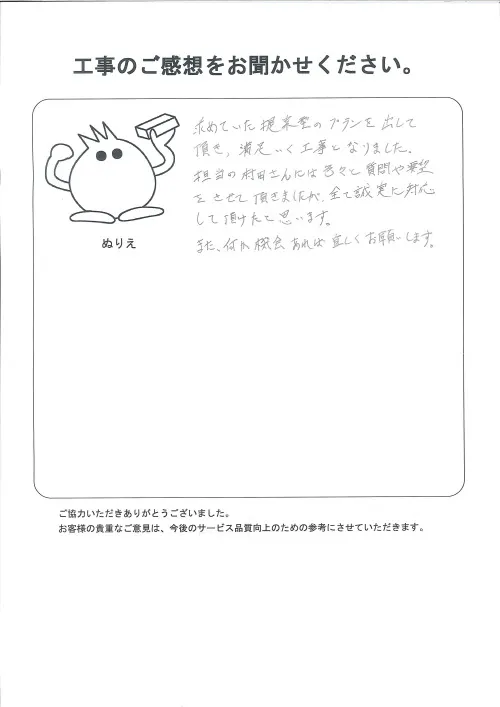 工事のご感想をお聞かせください。
求めていた提案型のプランを出して
頂き、満足いく工事となりました。
担当の村田さんには色々と質問や要望
をさせて頂きましたが、全て誠実に対応
して頂けたと思います。
また、何か機会あれば宜しくお願いします。
ぬりえ
ご協力いただきありがとうございました。
お客様の貴重なご意見は、今後のサービス品質向上のための参考にさせていただきます。